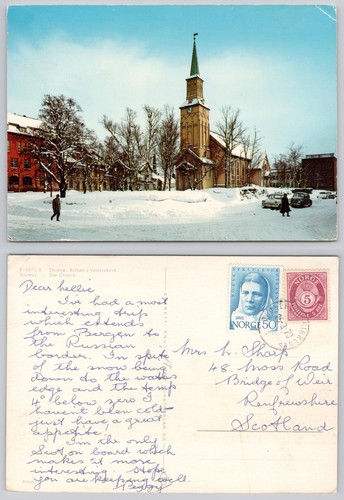 Norway
The Church
Dear Nellie
I've had a most
interesting trip
which extends
from Bergen to
the Russian
boarder. In spite
of the snow being
down to the waters
edge and the temp
4° below zero I
haven't been cold
just have a great
appetite.
I'm the only
Scot on board which
makes it more
interesting. Hope
you are keeping well.
Peggy
NORGE 50
NORGE
5
Mrs N. Sharp
48 Moss Road
Bridge of Weir
Renfrewshire
Scotland